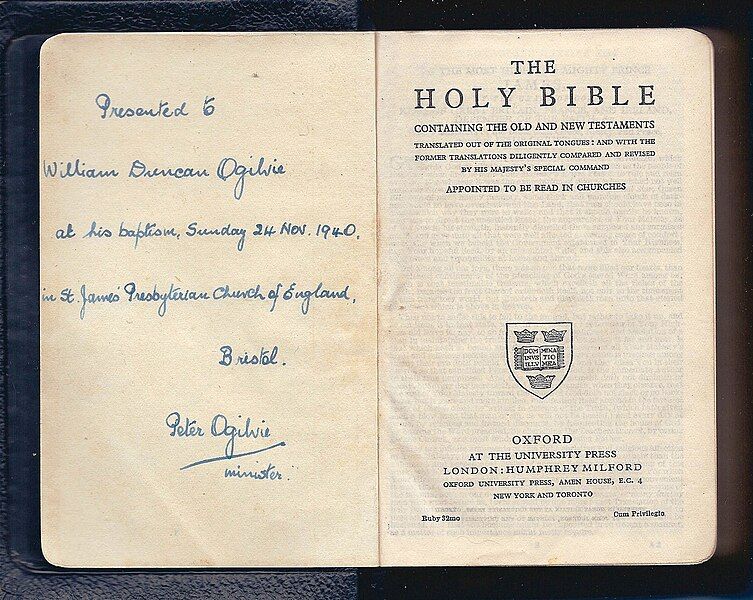 Presented to
William Duncan Ogilvie
at his baptism, Sunday 24 Nov. 1940,
in St. James' Presbyterian Church of England,
Bristol.
Peter Ogilvie
minister.
THE
HOLY BIBLE
CONTAINING THE OLD AND NEW TESTAMENTS
TRANSLATED OUT OF THE ORIGINAL TONGUES: AND WITH THE
FORMER TRANSLATIONS DILIGENTLY COMPARED AND REVISED
BY HIS MAJESTY'S SPECIAL COMMAND
APPOINTED TO BE READ IN CHURCHES
DOM MINA
INVS TIO
ILLV MEA
OXFORD
AT THE UNIVERSITY PRESS
LONDON: HUMPHREY MILFORD
OXFORD UNIVERSITY PRESS, AMEN HOUSE, E.C. 4
NEW YORK AND TORONTO
Ruby 32mo Cum Privilegio